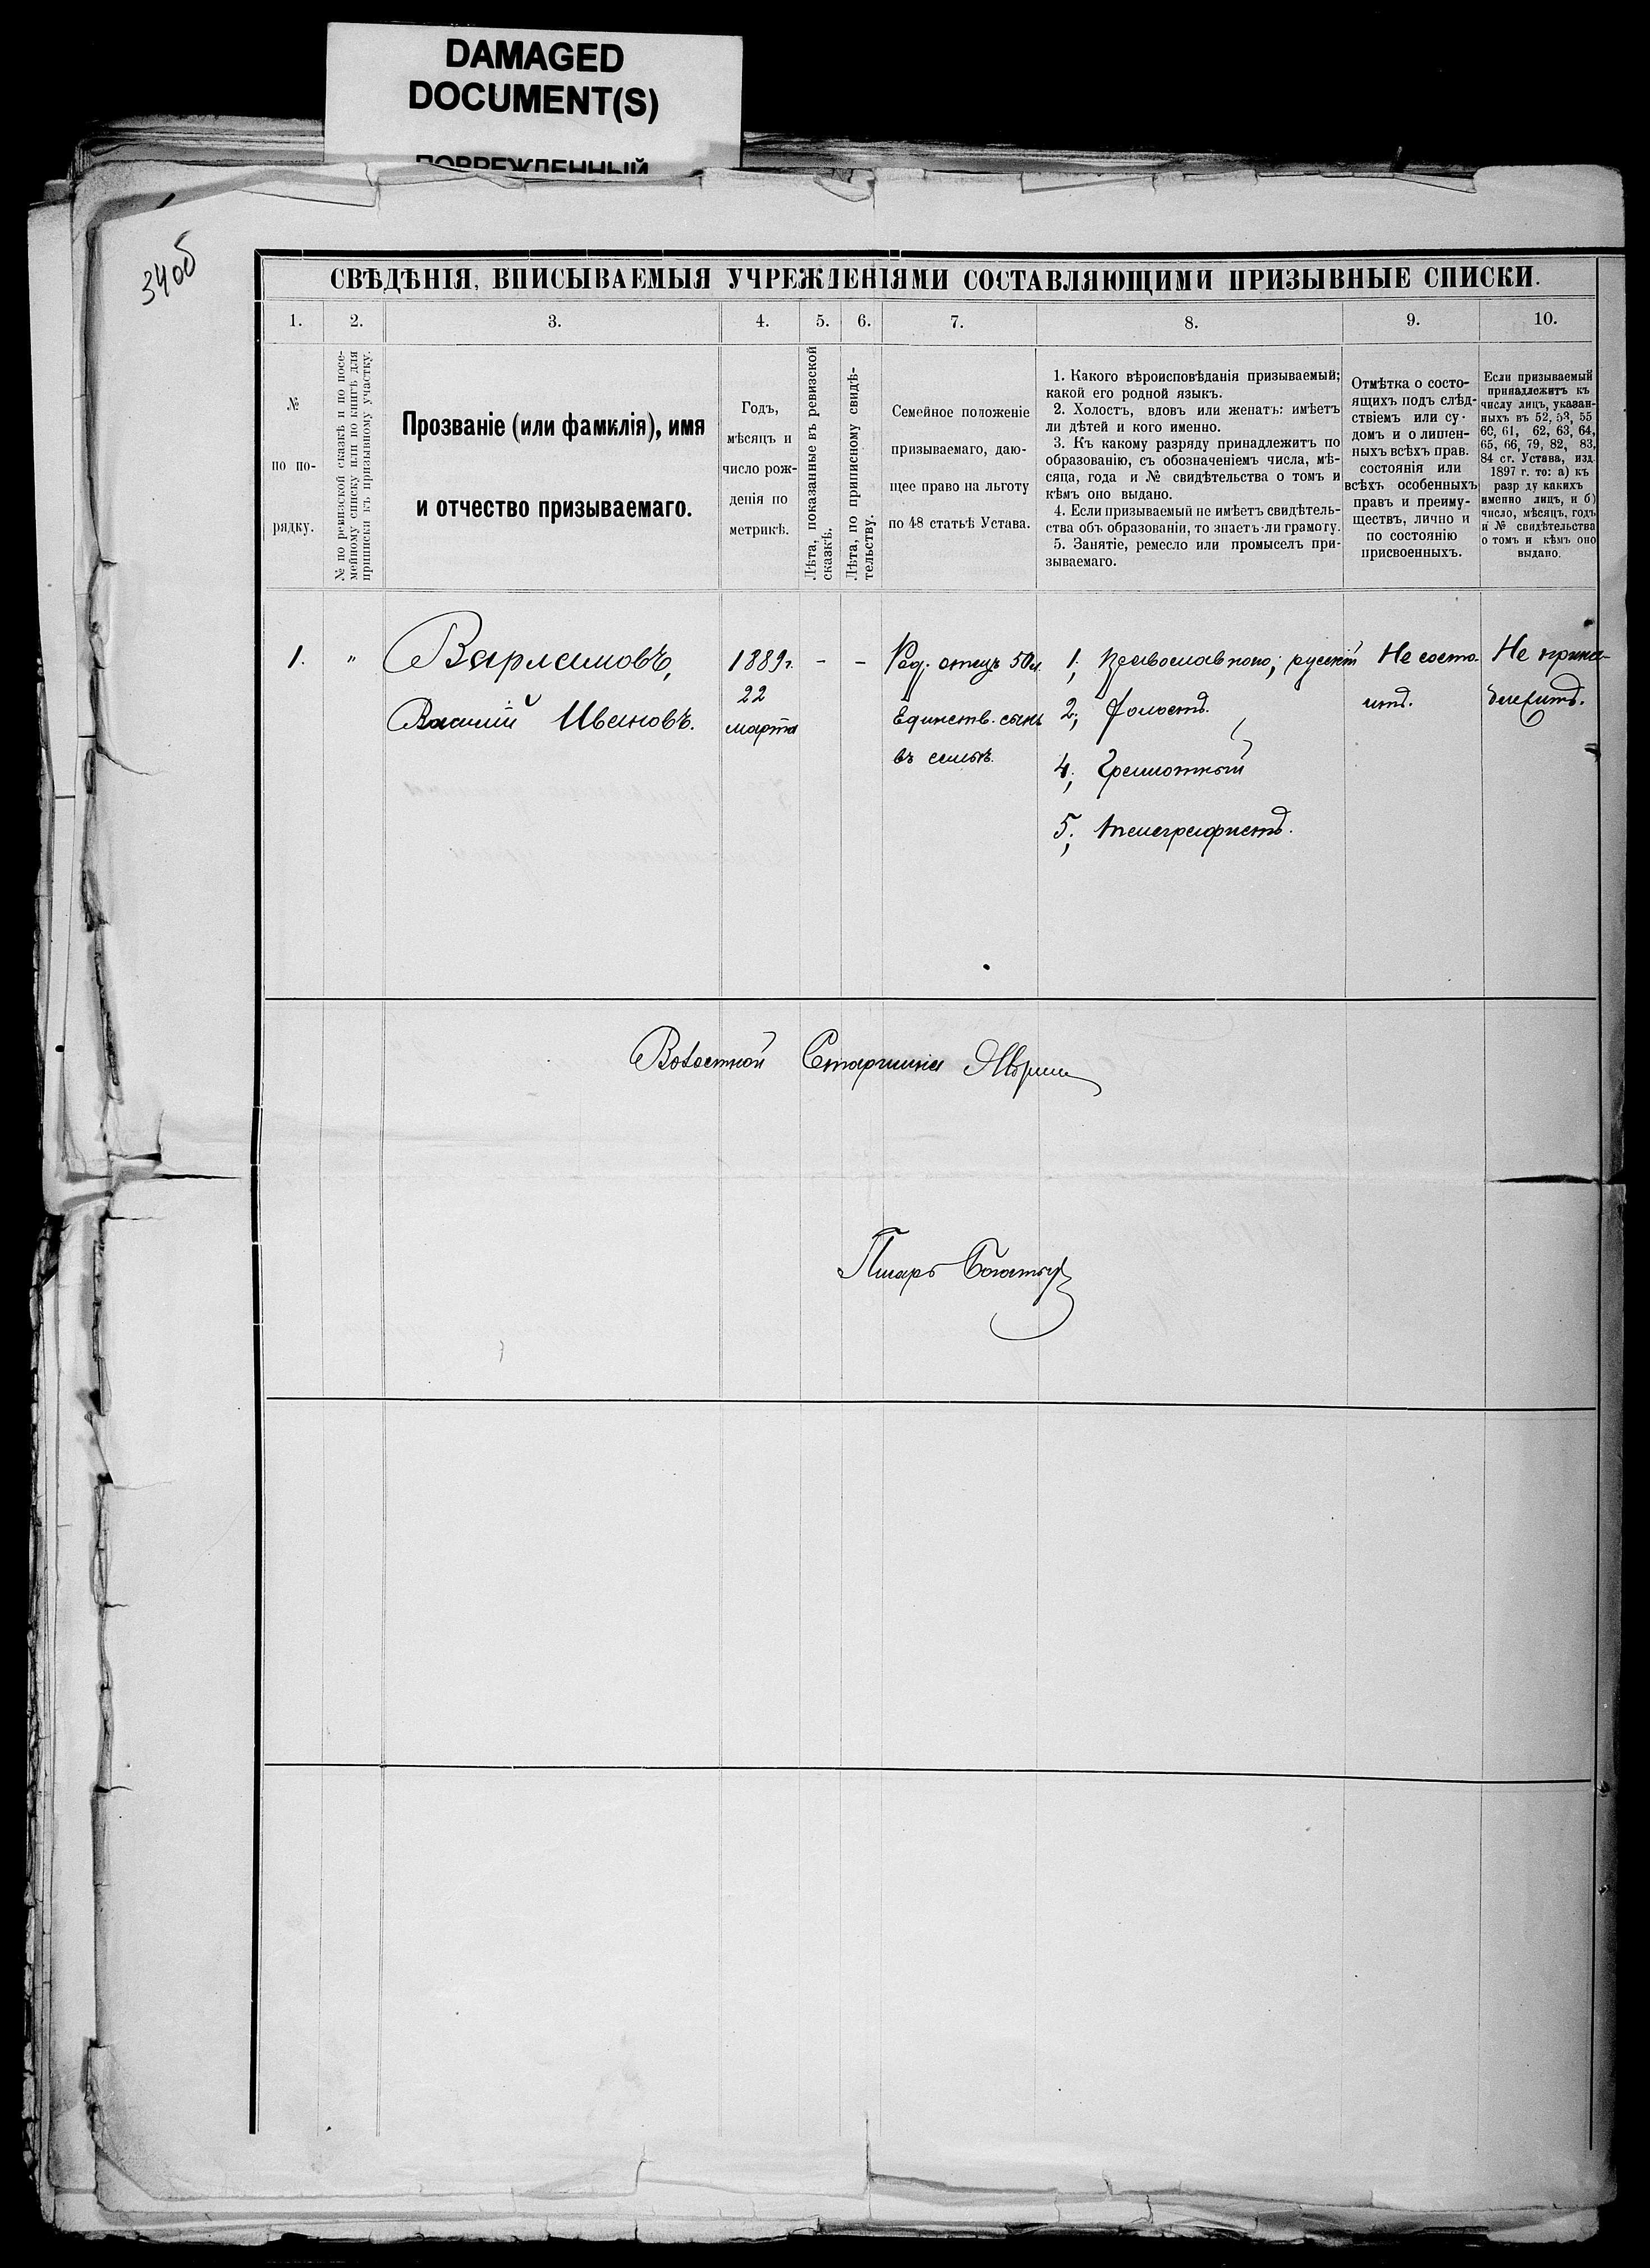 DAMAGED
DOCUMENT(S)
ПОВРЕЖДЕННЫЙ
34об
СВѢДѢНІЯ, ВПИСЫВАЕМЫЯ УЧРЕЖДЕНІЯМИ СОСТАВЛЯЮЩИМИ ПРИЗЫВНЫЕ СПИСКИ.
1. 2. 3. 4. 5. 6. 7. 8. 9. 10.
№
по по-
рядку.
№ по ревизской сказкѣ и по посе-
мейному списку или по книгѣ для
приписки къ призывному участку.
Прозваніе (или фамилія), имя
и отчество призываемаго.
Годъ,
мѣсяцъ и
число рож-
денія по
метрикѣ.
Лѣта, показанные въ ревизской
сказкѣ.
Лѣта, по приписному свидѣ-
тельству.
Семейное положеніе
призываемаго, даю-
щее право на льготу
по 48 статьѣ Устава.
1. Какого вѣроисповѣданія призываемый;
какой его родной языкъ.
2. Холостъ, вдовъ или женатъ: имѣетъ
ли дѣтей и кого именно.
3. Къ какому разряду принадлежитъ по
образованію, съ обозначеніемъ числа, мѣ-
сяца, года и № свидѣтельства о томъ и
кѣмъ оно выдано.
4. Если призываемый не имѣетъ свидѣтель-
ства объ образованіи, то знаетъ-ли грамоту.
5. Занятіе, ремесло или промыселъ при-
зываемаго.
Отмѣтка о состо-
ящихъ подъ слѣд-
ствіемъ или су-
домъ и о лишен-
ныхъ всѣхъ прав.
состоянія или
всѣхъ особенныхъ
правъ и преиму-
ществъ, лично и
по состоянію
присвоенныхъ.
Если призываемый
принадлежитъ къ
числу лицъ, указан-
ныхъ въ 52, 53, 55
60, 61, 62, 63, 64,
65, 66, 79, 82, 83,
84 ст. Устава, изд.
1897 г. то: а) къ
разр ду какихъ
именно лицъ, и б)
число, мѣсяцъ, годъ
и № свидѣтельства
о томъ и кѣмъ оно
выдано.
1. " Варламовъ,
Василій Ивановъ.
1889 г.
22
марта
- -
Род. отецъ 50 л.
Единств. сынъ
въ семьѣ.
1; Православнаго; русскій
2; Холостъ.
4; Грамотный
5; телеграфистъ.
Не состо-
итъ.
Не прина-
длежитъ.
Волостной Старшина
Писарь